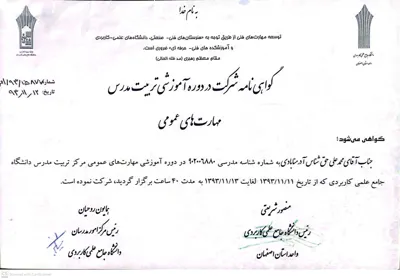 به نام خدا
توسعه مهارت‌های فنی از طریق توجه به هنرستان‌های فنی- صنعتی، دانشگاه‌های علمی-کاربردی
و آموزشکده های فنی- حرفه ای، ضروری است.
مقام معظم رهبری (مد ظله العالی)
تاریخ: ۹۳،۱۱،۱۲
گواهی نامه شرکت در دوره آموزشی تربیت مدرس
مهارت‌های عمومی
گواهی می‌شود:
جناب آقای محمد علی حق شناس آدرمنابادی به شماره شناسه مدرسی ۹۰۲۰۰۶۸۸۰ در دوره آموزشی مهارت‌های عمومی مرکز تربیت مدرس دانشگاه
جامع علمی کاربردی که از تاریخ ۱۳۹۳/۱۱/۱۱ لغایت ۱۳۹۳/۱۱/۱۳ به مدت ۴۰ ساعت برگزار گردید، شرکت نموده است.
منصور شریعتی
رئیس دانشگاه جامع علمی کاربردی
واحد استان اصفهان
همایون روحیان
رئیس مرکز امور مدرسان
دانشگاه جامع علمی کاربردی